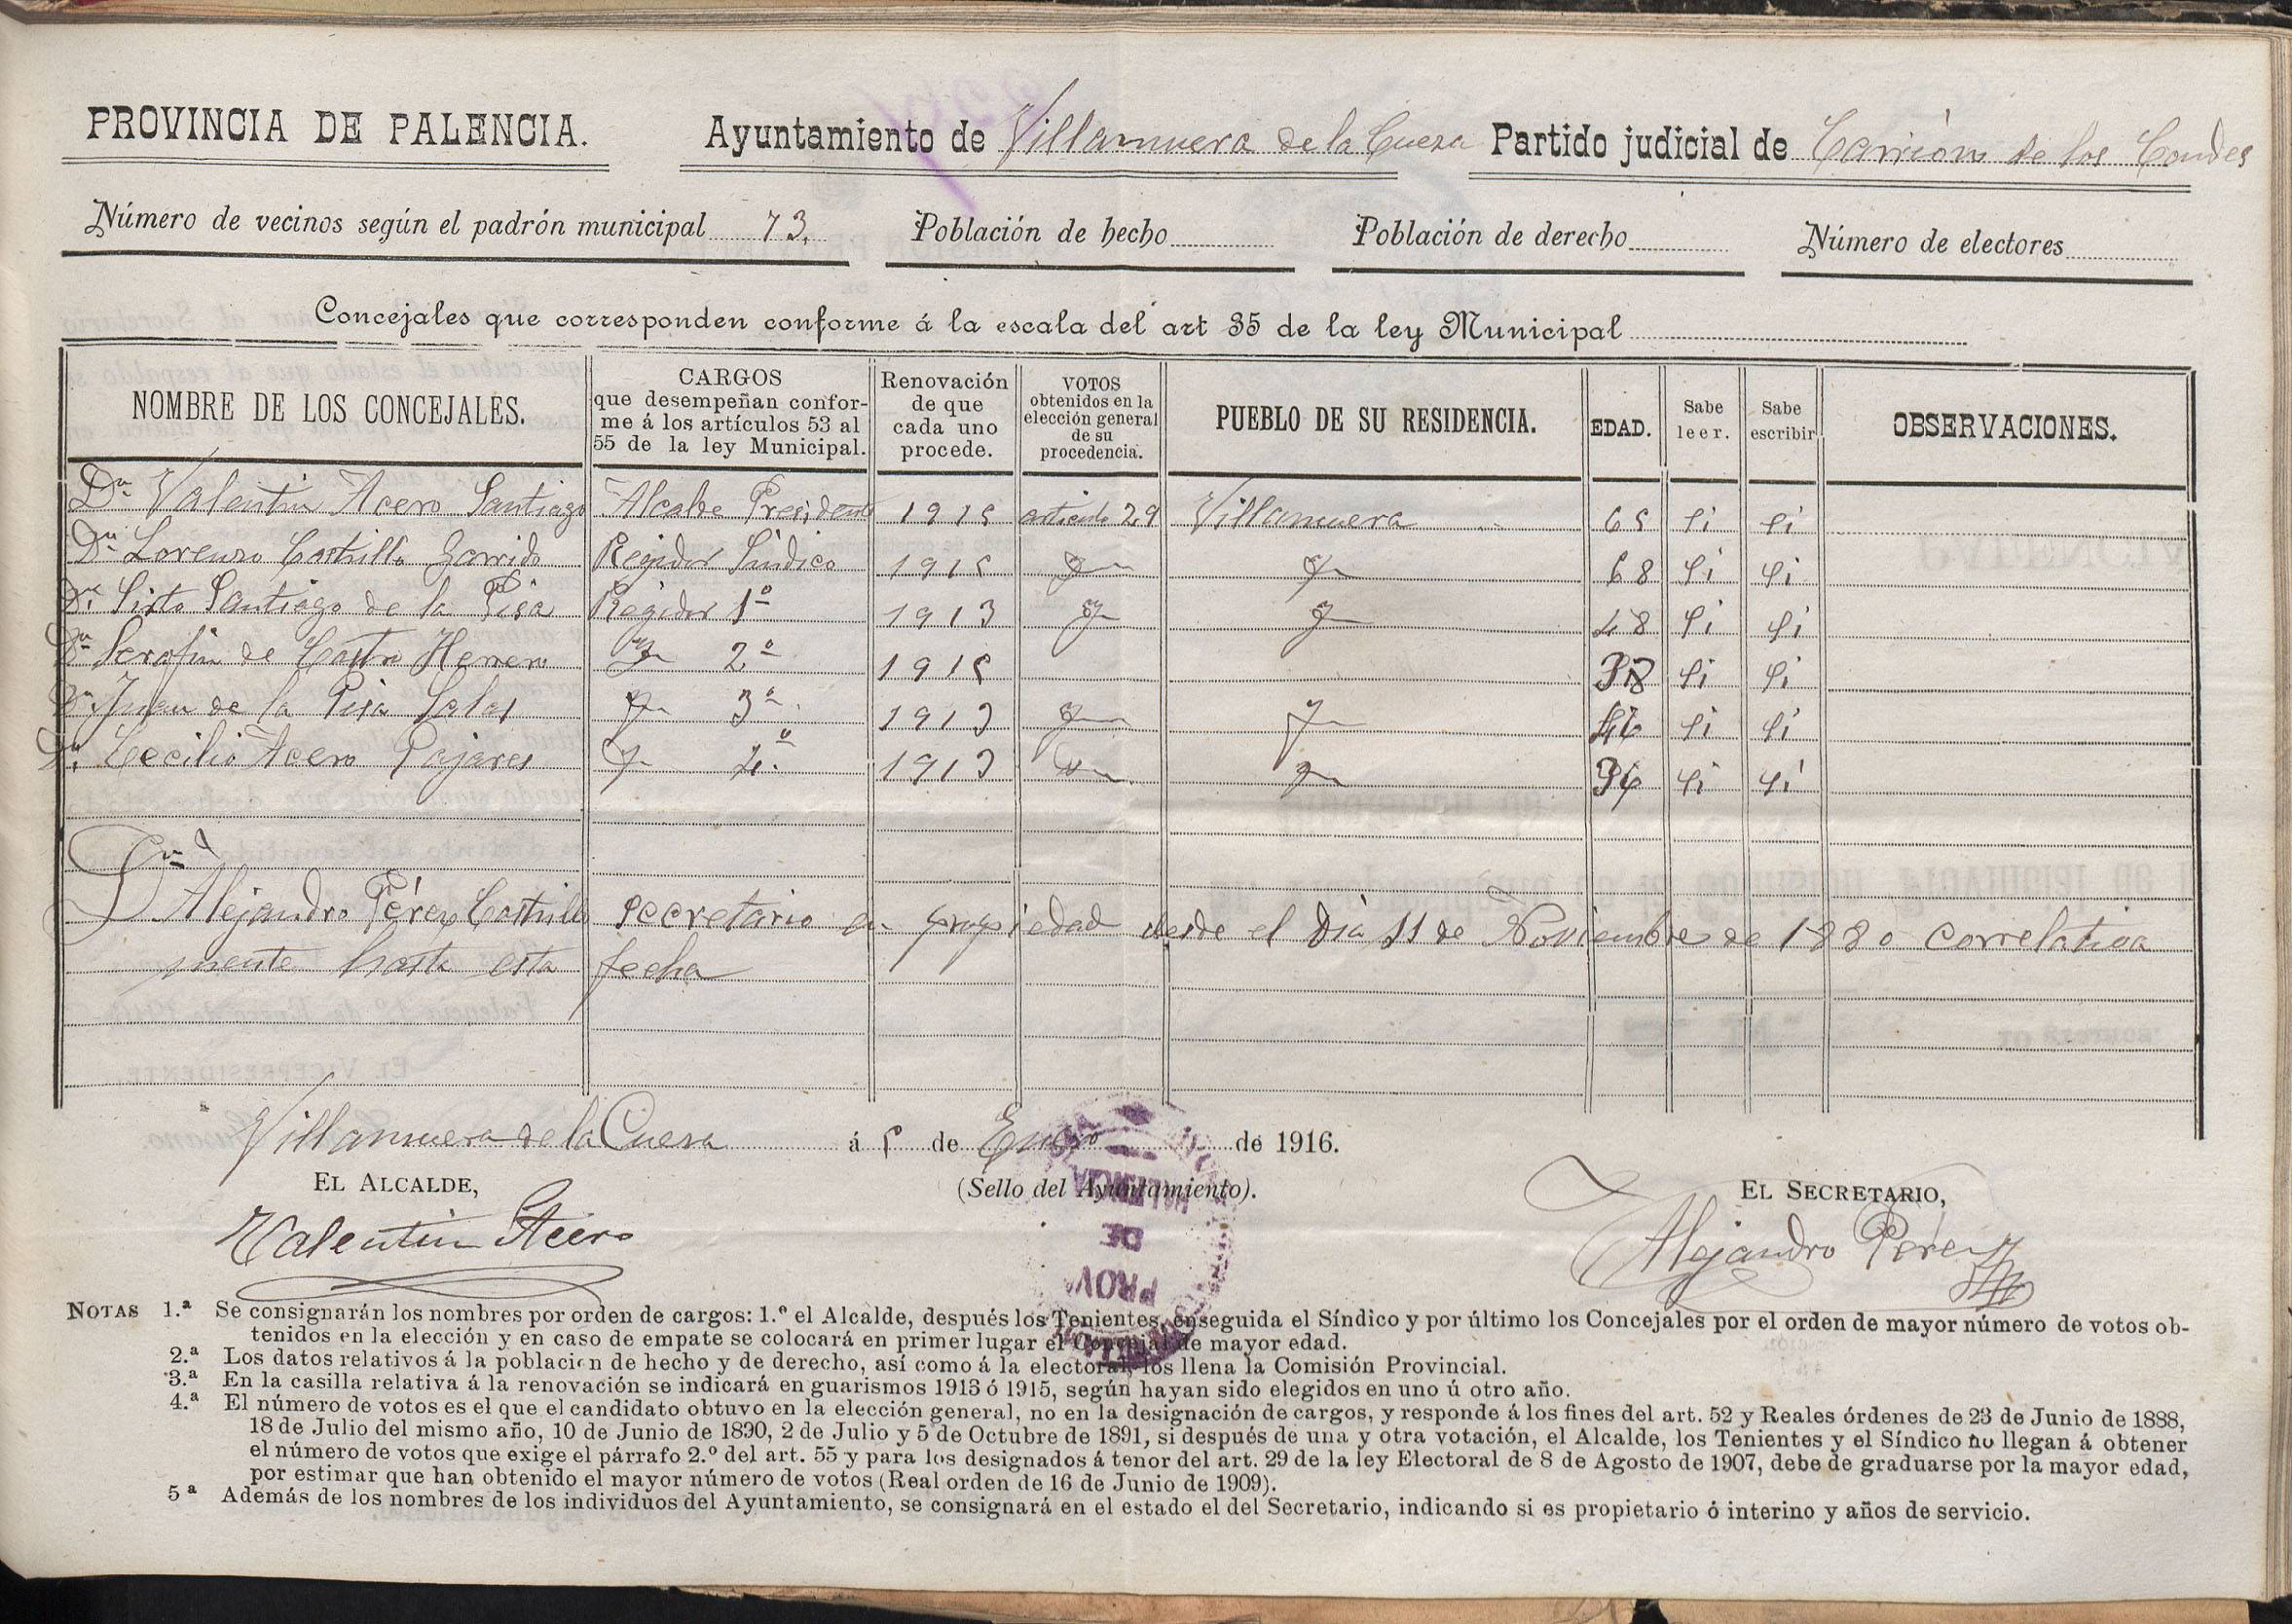 PROVINCIA DE PALENCIA. Ayuntamiento de Villanueva de la Cueza Partido judicial de Carrión de los Condes
Número de vecinos según el padrón municipal 73. Población de hecho Población de derecho Número de electores
Concejales que corresponden conforme á la escala del art 35 de la ley Municipal
NOMBRE DE LOS CONCEJALES. CARGOS que desempeñan conforme á los artículos 53 al 55 de la ley Municipal. Renovación de que cada uno procede. VOTOS obtenidos en la elección general de su procedencia. PUEBLO DE SU RESIDENCIA. EDAD. Sabe leer. Sabe escribir OBSERVACIONES.
Dn Valentin Acero Santiago Alcalde Presidente 1915 articulo 29 Villanueva 65 si si
Dn Lorenzo Castrillo Garrido Regidor Sindico 1915 68 si si
Dn Sisto Santiago de la Pisa Regidor 1º 1913 48 si si
Dn Serafin de Castro Herrero 2º 1915 38 si si
Dn Juan de la Pisa Salas 3º 1913 46 si si
Dn Cecilio Acero Pajares 4º 1913 si si
Dn Alejandro Pérez Castrillo secretario en propiedad desde el Dia 11 de Noviembre de 1880 correlativa
mente hasta esta fecha
Villanueva de la Cueza á 5 de Enero de 1916.
EL ALCALDE, (Sello del Ayuntamiento). EL SECRETARIO,
Valentin Acero Alejandro Pérez
PALENCIA
DE
PROV
NOTAS 1.ª Se consignarán los nombres por orden de cargos: 1.º el Alcalde, después los Tenientes, enseguida el Síndico y por último los Concejales por el orden de mayor número de votos ob-
tenidos en la elección y en caso de empate se colocará en primer lugar el Concejal de mayor edad.
2.ª Los datos relativos á la población de hecho y de derecho, así como á la electoral, los llena la Comisión Provincial.
3.ª En la casilla relativa á la renovación se indicará en guarismos 1913 ó 1915, según hayan sido elegidos en uno ú otro año.
4.ª El número de votos es el que el candidato obtuvo en la elección general, no en la designación de cargos, y responde á los fines del art. 52 y Reales órdenes de 23 de Junio de 1888,
18 de Julio del mismo año, 10 de Junio de 1890, 2 de Julio y 5 de Octubre de 1891, si después de una y otra votación, el Alcalde, los Tenientes y el Síndico no llegan á obtener
el número de votos que exige el párrafo 2.º del art. 55 y para los designados á tenor del art. 29 de la ley Electoral de 8 de Agosto de 1907, debe de graduarse por la mayor edad,
por estimar que han obtenido el mayor número de votos (Real orden de 16 de Junio de 1909).
5ª Además de los nombres de los individuos del Ayuntamiento, se consignará en el estado el del Secretario, indicando si es propietario ó interino y años de servicio.